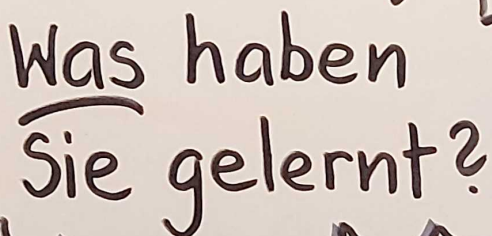 Was haben
Sie gelernt?